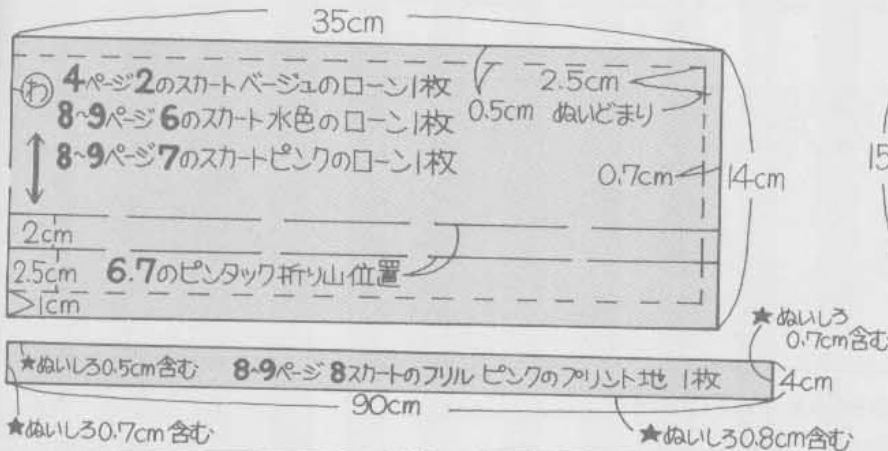 35cm
わ
4ページ2のスカートベージュのローン1枚
8~9ページ6のスカート水色のローン1枚
8~9ページ7のスカートピンクのローン1枚
0.5cm
2.5cm
ぬいどまり
0.7cm
14cm
15
2cm
2.5cm
6.7のピンタック折り山位置
1cm
★ぬいしろ
0.7cm含む
★ぬいしろ0.5cm含む
8~9ページ8スカートのフリル ピンクのプリント地 1枚
4cm
90cm
★ぬいしろ0.7cm含む
★ぬいしろ0.8cm含む